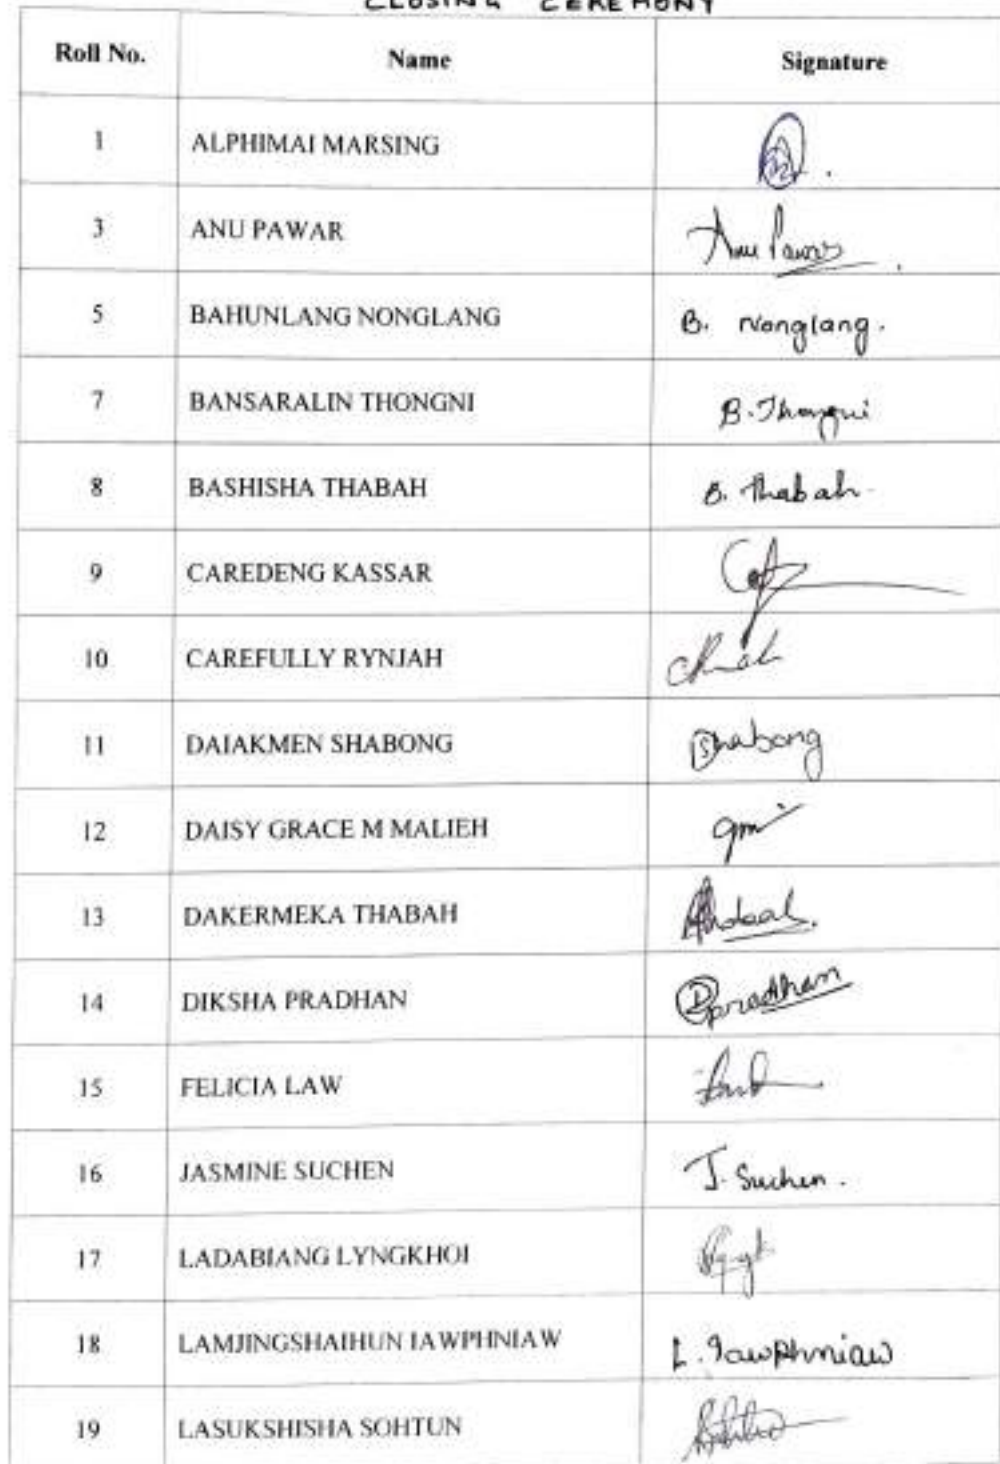 CLOSING CEREMONY
Roll No. Name Signature
1 ALPHIMAI MARSING
3 ANU PAWAR Anu Pawar
5 BAHUNLANG NONGLANG B. Nonglang.
7 BANSARALIN THONGNI B. Thongni
8 BASHISHA THABAH B. Thabah
9 CAREDENG KASSAR
10 CAREFULLY RYNJAH
11 DAIAKMEN SHABONG Shabong
12 DAISY GRACE M MALIEH
13 DAKERMEKA THABAH
14 DIKSHA PRADHAN Dpradhan
15 FELICIA LAW
16 JASMINE SUCHEN J. Suchen.
17 LADABIANG LYNGKHOI
18 LAMJINGSHAIHUN IAWPHNIAW L. Iawphniaw
19 LASUKSHISHA SOHTUN